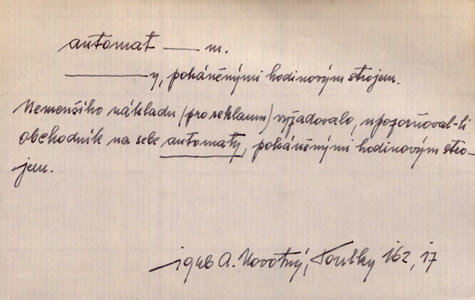 automat — m.
—y, poháněnými hodinovým strojem.
Nemenšího nákladu /pro reklamu/ vyžadovalo, upozorňoval-li
obchodník na sebe automaty, poháněnými hodinovým stro-
jem.
1946 A. Novotný, Toulky 162, 17